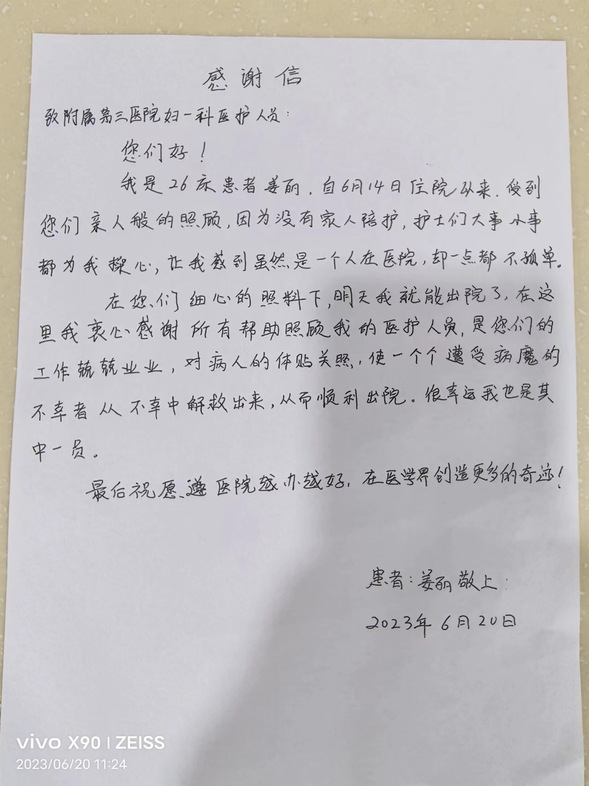 感谢信
致附属第三医院妇一科医护人员:
您们好!
我是26床患者姜丽,自6月14日住院以来,受到
您们亲人般的照顾,因为没有家人陪护,护士们大事小事
都为我操心,让我感到虽然是一个人在医院,却一点都不孤单。
在您们细心的照料下,明天我就能出院了,在这
里我衷心感谢所有帮助照顾我的医护人员,是您们的
工作兢兢业业,对病人的体贴关照,使一个个遭受病魔的
不幸者从不幸中解救出来,从而顺利出院。很幸运我也是其
中一员。
最后祝愿医院越办越好,在医学界创造更多的奇迹!
患者:姜丽敬上.
2023年6月20日
vivo X90 | ZEISS
2023/06/20 11:24